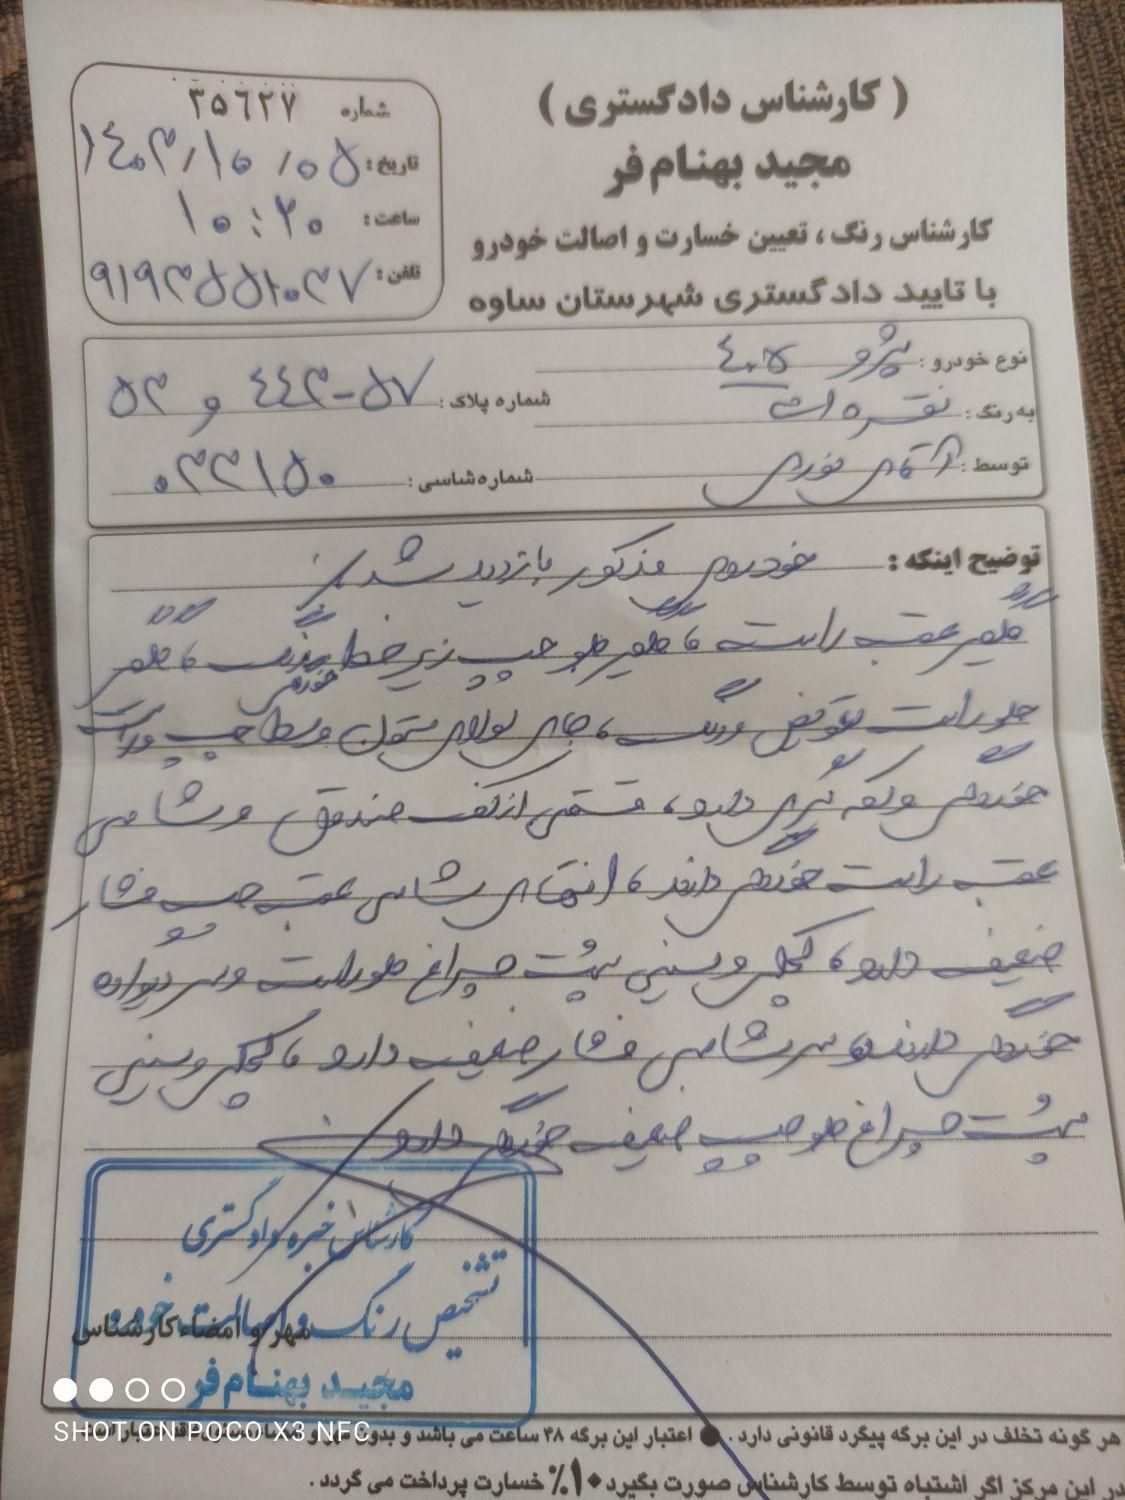 ( کارشناس دادگستری )
مجید بهنام فر
کارشناس رنگ ، تعیین خسارت و اصالت خودرو
با تایید دادگستری شهرستان ساوه
شماره ۳۵۶۲۷
تاریخ : ۱۴۰۳/۱۰/۰۵
ساعت : ۱۰:۲۰
تلفن : ۹۱۹۳۵۵۱۰۳۷
نوع خودرو : پژو ۴۰۵
به رنگ : نقره ای
شماره پلاک : ۵۷-۴۴۳ و ۵۳
توسط : آقای نوری
شماره شاسی : ۰۳۳۱۵۰
توضیح اینکه : خودروی مذکور بازدید شد :
گلگیر عقب راست ، گلگیر جلو چپ زیر خط رنگ ، گلگیر
خوردگی
جلو راست تعویض و رنگ ، جای لولای ستون وسط چپ و راست
خوردگی و لکه گیری دارد ، قسمتی از کف صندوق و شاسی
عقب راست خوردگی دارند ، انتهای شاسی عقب چپ فشار
ضعیف دارد ، لچکی و سینی پشت چراغ جلو راست و سر دیواره
خوردگی دارند ، سر شاسی فشار ضعیف دارد ، لچکی و سینی
پشت چراغ جلو چپ ضعیف خوردگی دارد
کارشناس خبره دادگستری
تشخیص رنگ و اصالت خودرو
مهر و امضاء کارشناس
مجید بهنام فر
هر گونه تخلف در این برگه پیگرد قانونی دارد . ● اعتبار این برگه ۴۸ ساعت می باشد و بدون
در این مرکز اگر اشتباه توسط کارشناس صورت بگیرد ۱۰% خسارت پرداخت می گردد .
SHOT ON POCO X3 NFC